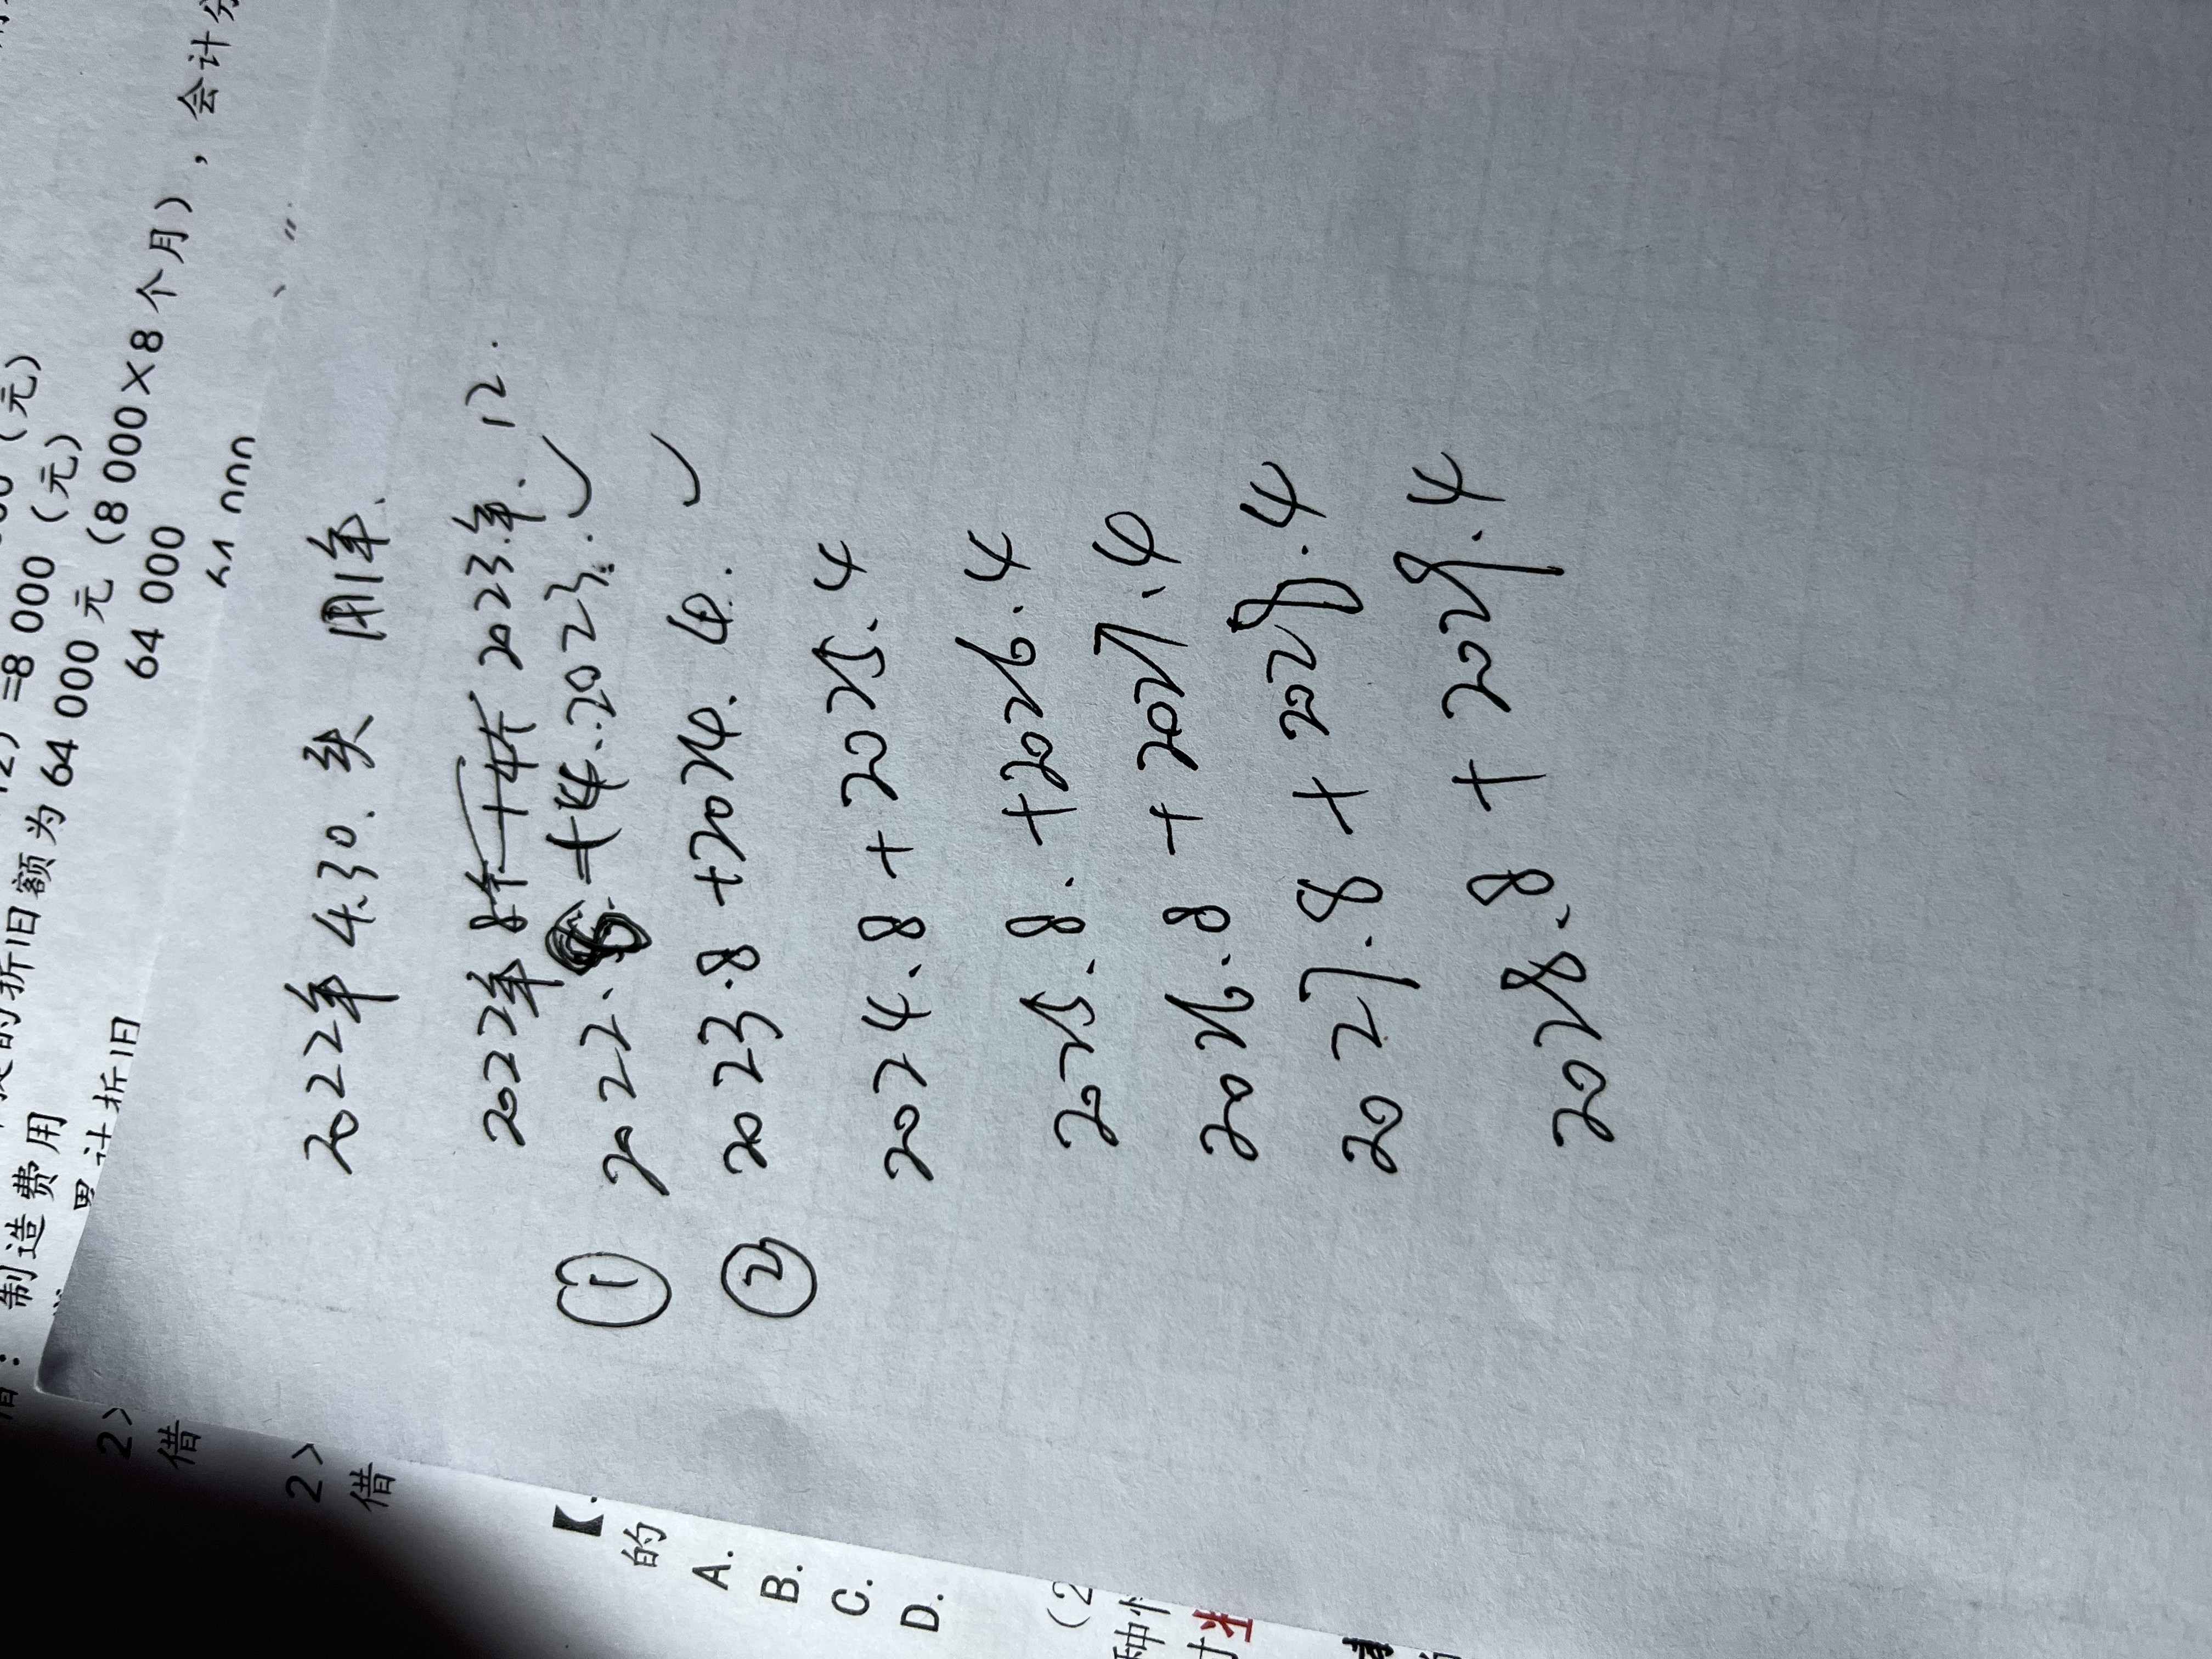 (元)
=8 000 (元)
的折旧额为 64 000 元 (8 000×8 个月)，会计分
64 000
制造费用
累计折旧
2>
借
2>
借
2022年 4.30. 买 用1年.
2022年 8个 2023年. 12.
① 2022. +4. 2023. ✓
② 2023.8 +2024. 4. ✓
2024.8 + 2025.4
2025.8. +2026.4
2026.8 + 2027.4
2027.8 + 2028.4
2028.8 + 2029.4
【
的
A.
B.
C.
D.
(2
种